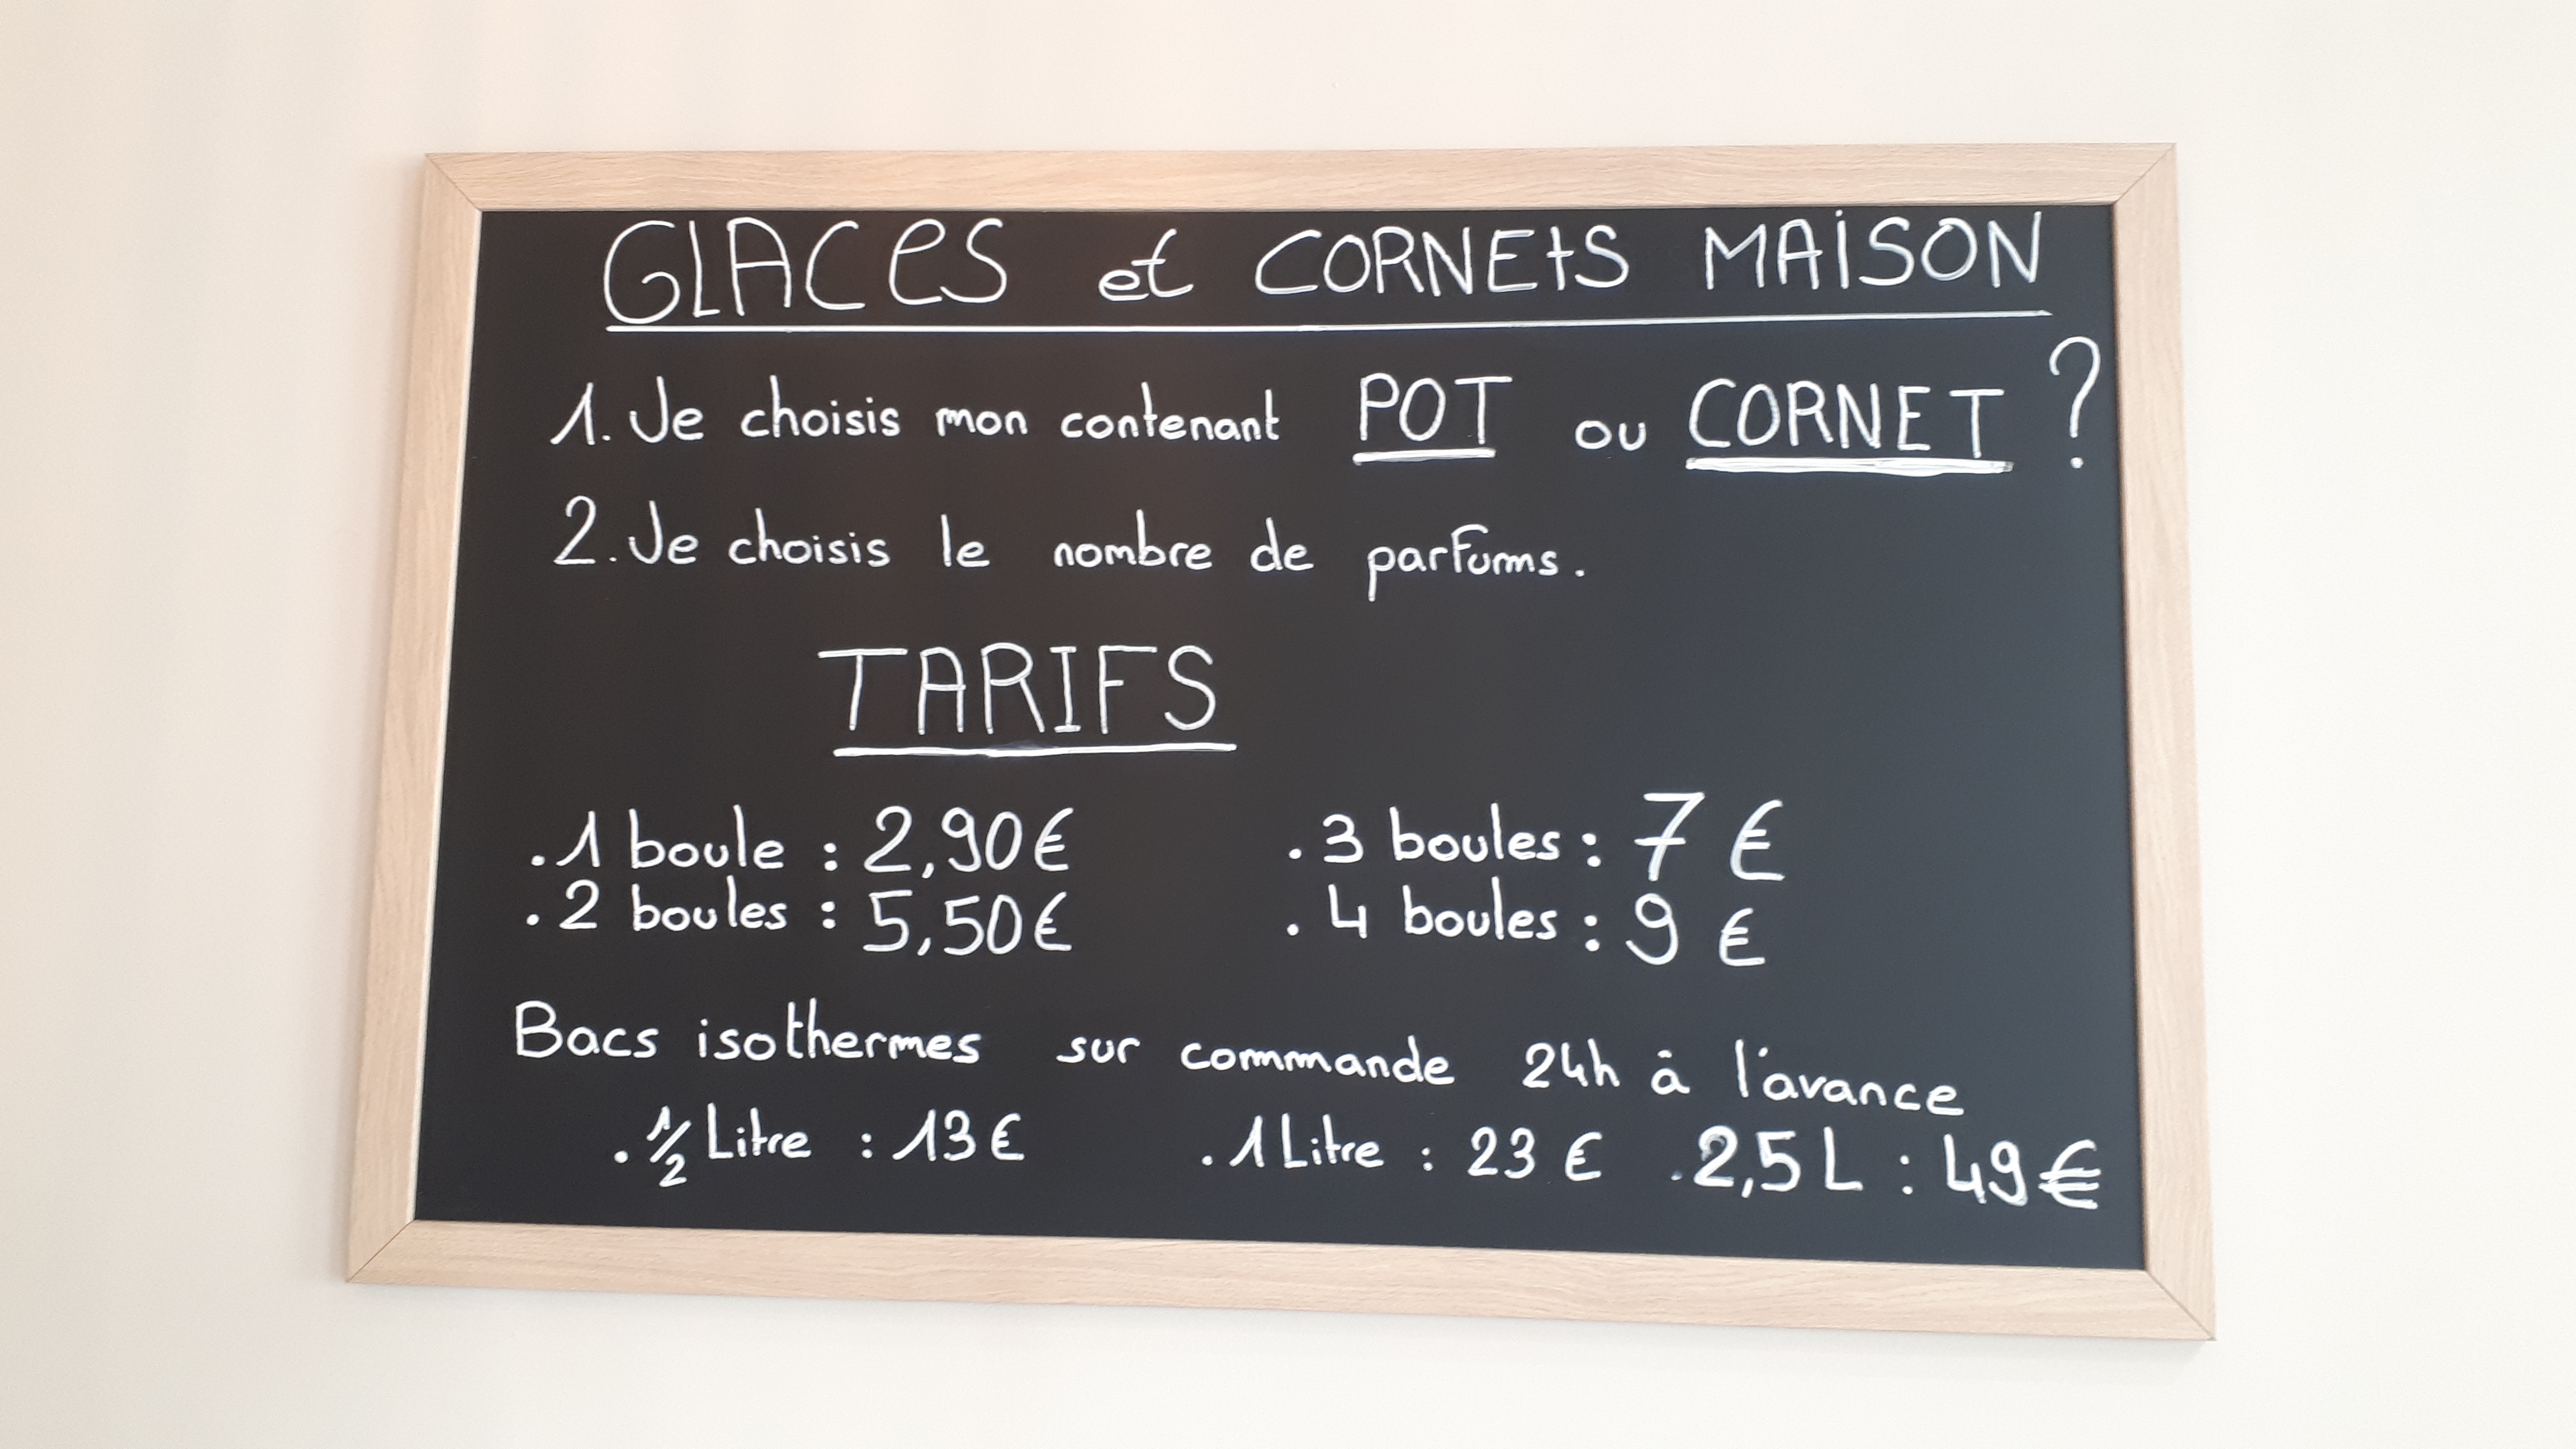 GLACES et CORNEtS MAiSON
1. Je choisis mon contenant POT ou CORNET ?
2. Je choisis le nombre de parfums.
TARIFS
. 1 boule : 2,90€ . 3 boules : 7 €
. 2 boules : 5,50€ . 4 boules : 9 €
Bacs isothermes sur commande 24h à l'avance
. 1/2 Litre : 13 € . 1 Litre : 23 € . 2,5 L : 49 €